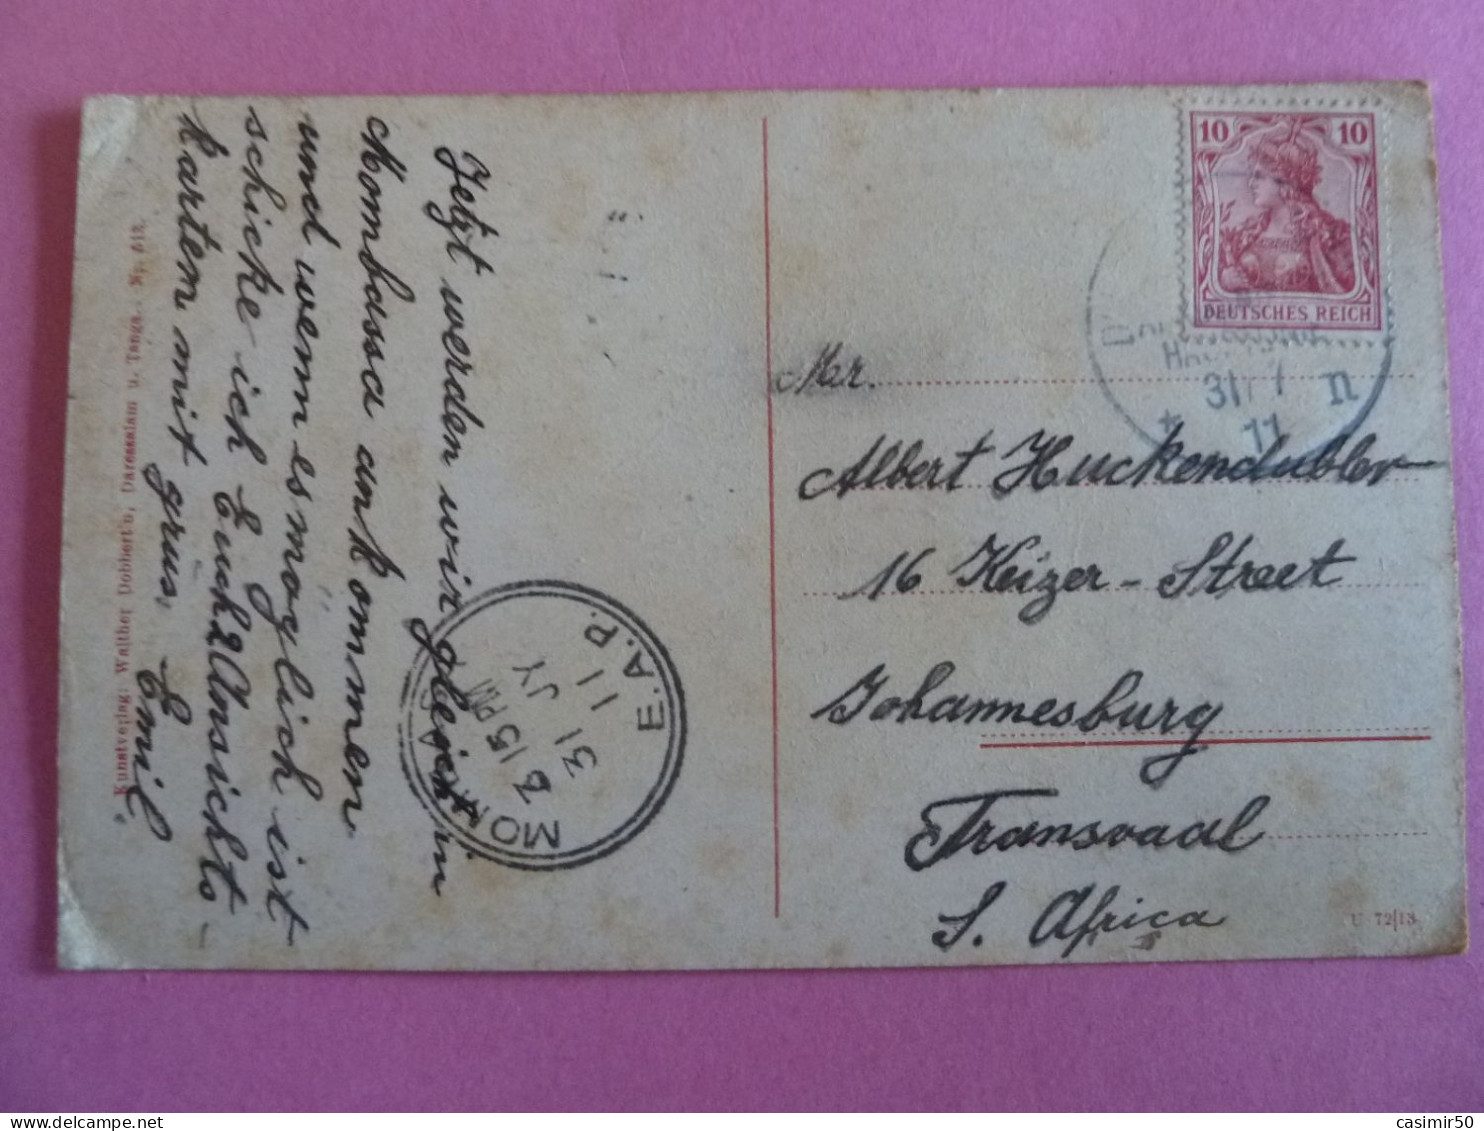 Jetzt werden wir gleich in
Mombassa ankommen
und wenn es möglich ist
schicke ich Euch 2 Ansichts-
karten mit grus, Emil
Kunstverlag: Walther Dobbertin, Daressalam u. Tanga. Nr. 513.
MOMBASA
3 15 PM
31 JY
11
E.A.P.
10 10
DEUTSCHES REICH
31/7
11
n
Mr.
Albert Huckendubler
16 Keizer-Street
Johannesburg
Transvaal
S. Africa
U 72/13
casimir50